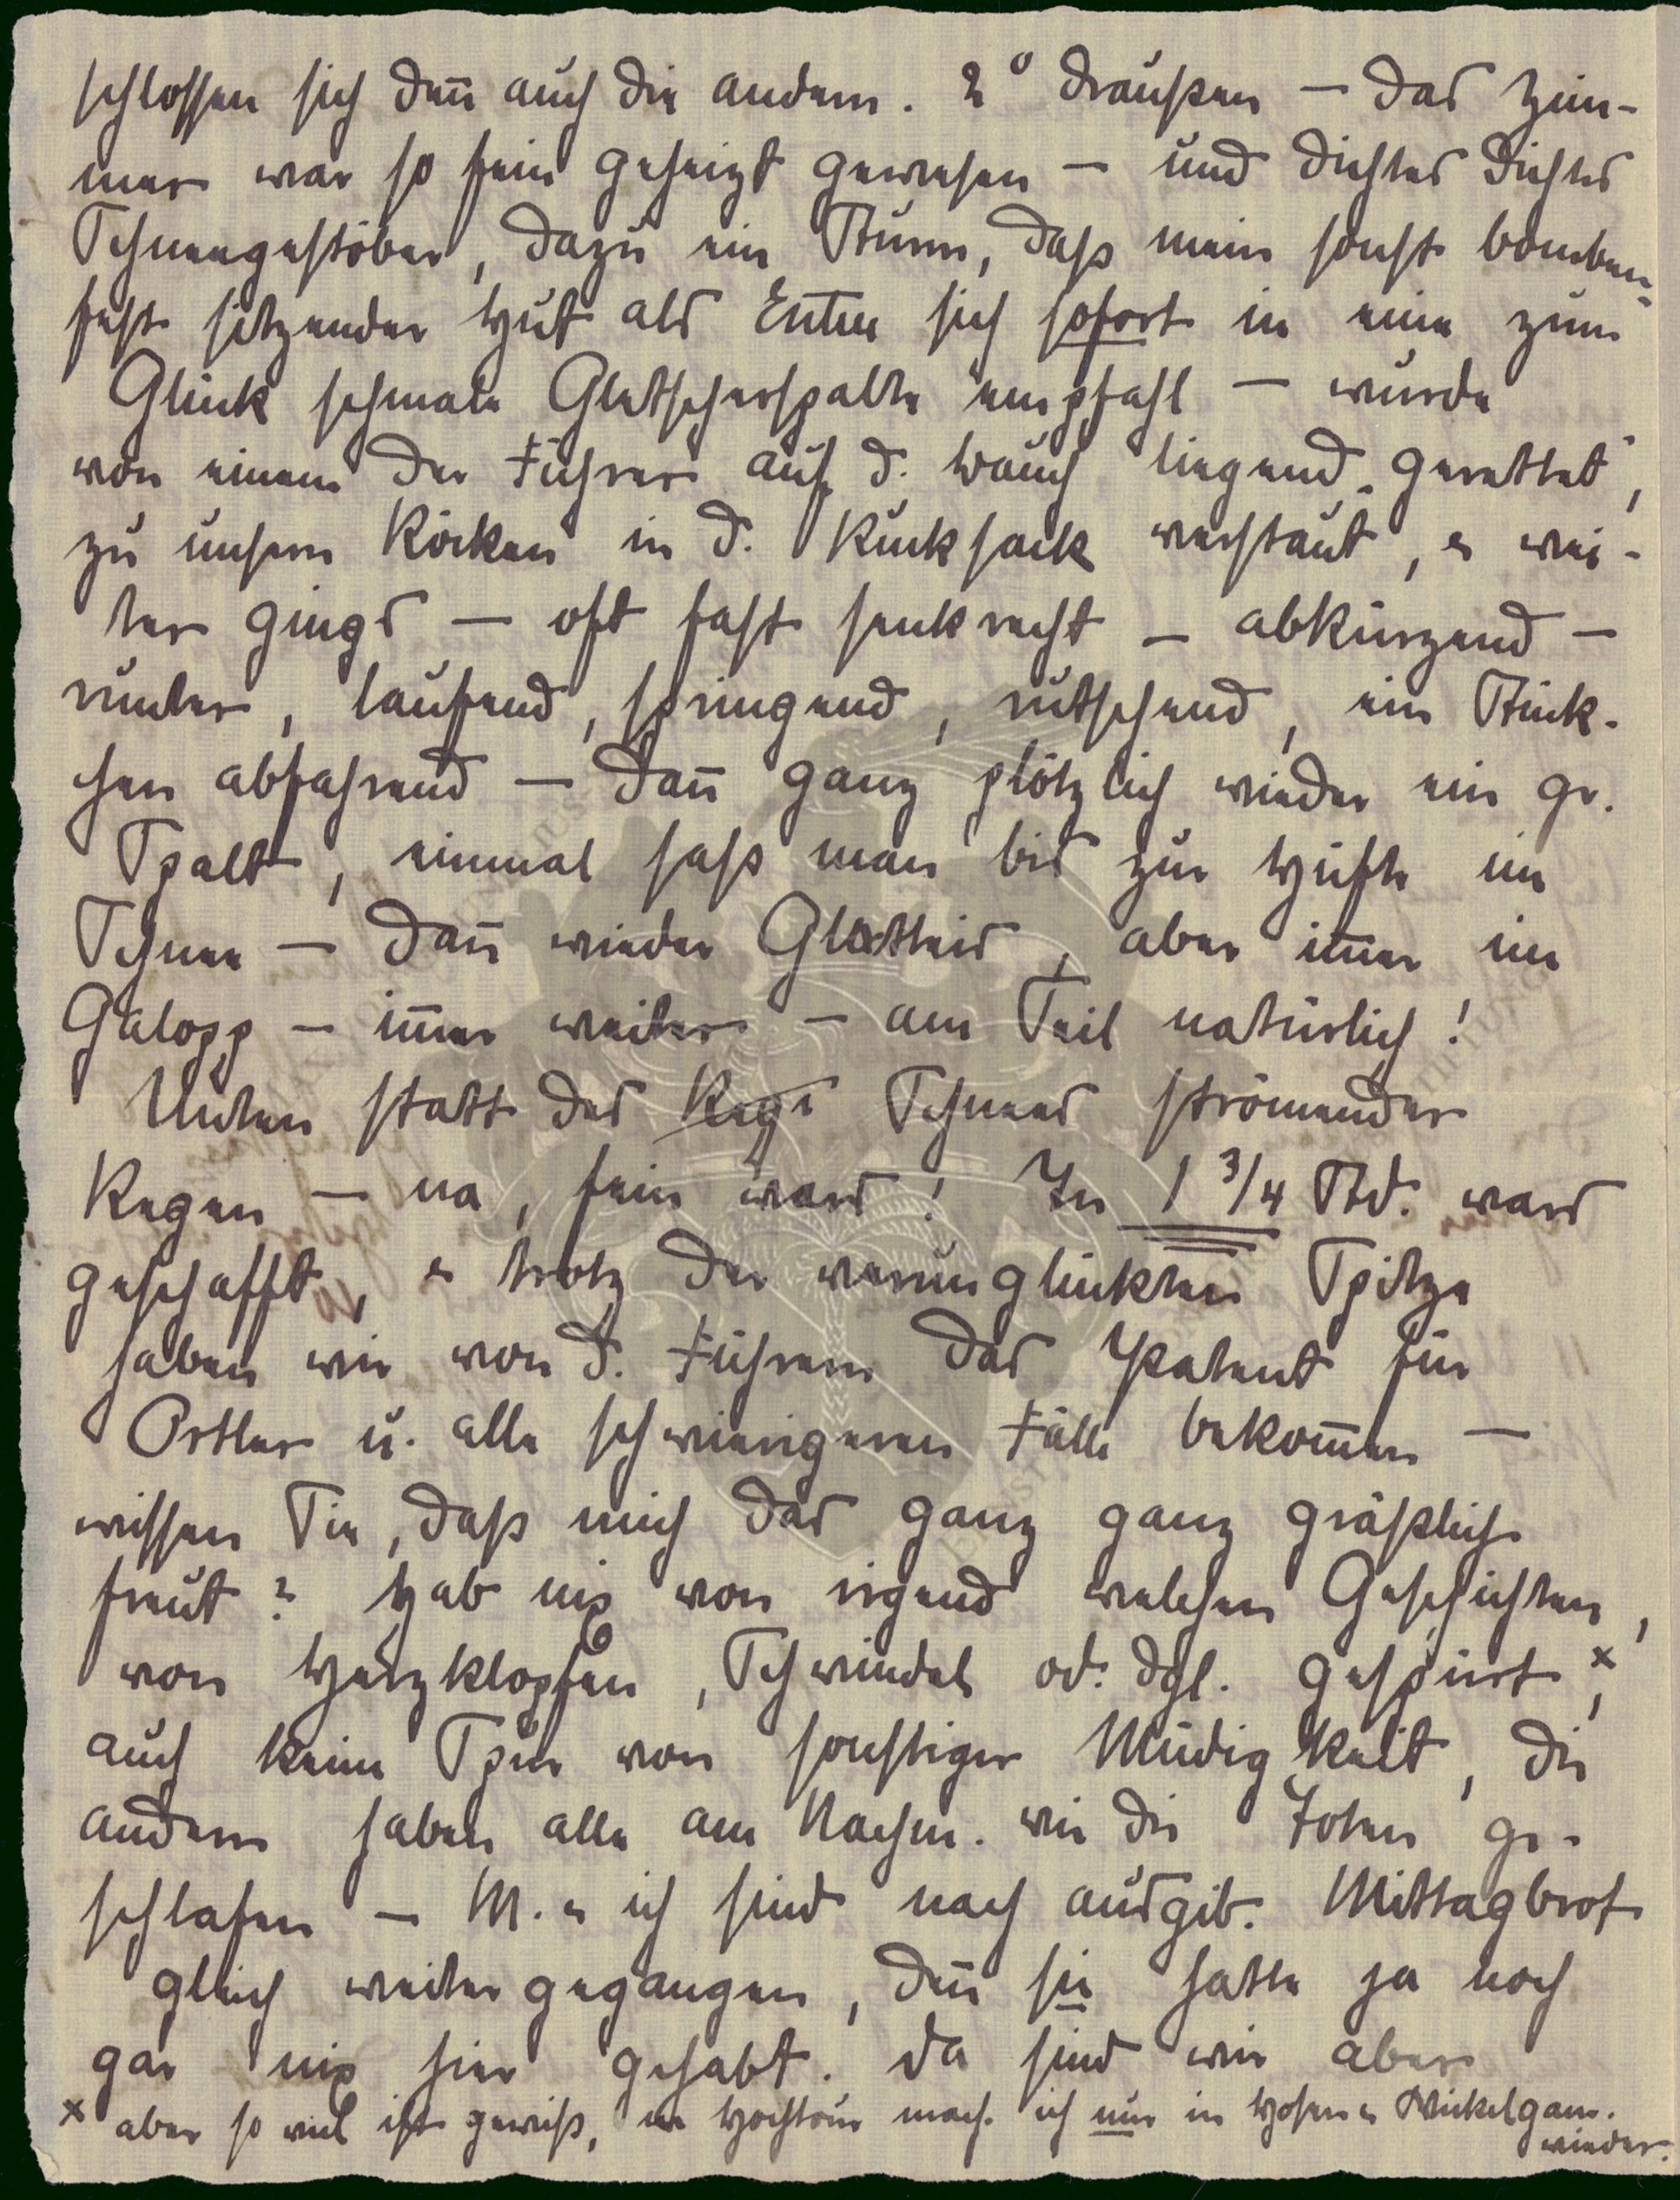 schlossen sich deñ auch die andern. 2° draußen – das Zim-
mer war so fein geheizt gewesen – und dichtes dichtes
Schneegestöber, dazu ein Sturm, daß mein sonst bomben-
fest sitzender Hut als Erster sich sofort in eine zum
Glück schmale Gletscherspalte empfahl – wurde
von einem der Führer auf d. Bauch liegend „gerettet",
zu unsern Röcken in d. Rucksack verstaut, u wei-
ter gings – oft fast senkrecht – abkürzend –
runter, laufend, springend, rutschend, ein Stück-
chen abfahrend – dañ ganz plötzlich wieder ein gr.
Spalt, einmal saß man bis zur Hüfte im
Schnee – dañ wieder Glatteis, aber im̃er im
Galopp – im̃er weiter – am Seil natürlich!
Unten statt des Regs Schnees strömender
Regen – na, fein wars! In 1 3/4 Std. wars
geschafft, u trotz der verunglückten Spitze
haben wir von d. Führern das Patent für
Ortler u. alle schwierigeren Fälle bekom̃en –
wissen Sie, daß mich das ganz ganz gräßlich
freut? Hab nix von irgend welchen Geschichten,
von Herzklopfen, Schwindel od. dgl. gespürt x,
auch keine Spur von sonstiger Müdigkeit, die
andern haben alle am Nachm. wie die Toten ge-
schlafen – M. u ich sind nach ausgib. Mittagbrot
gleich weiter gegangen, deñ sie hatte ja noch
gar nix hier gehabt. Da sind wir aber
x aber so viel ist gewiß, ne Hochtour mach ich nur in Hosen u Wickelgam.
wieder.